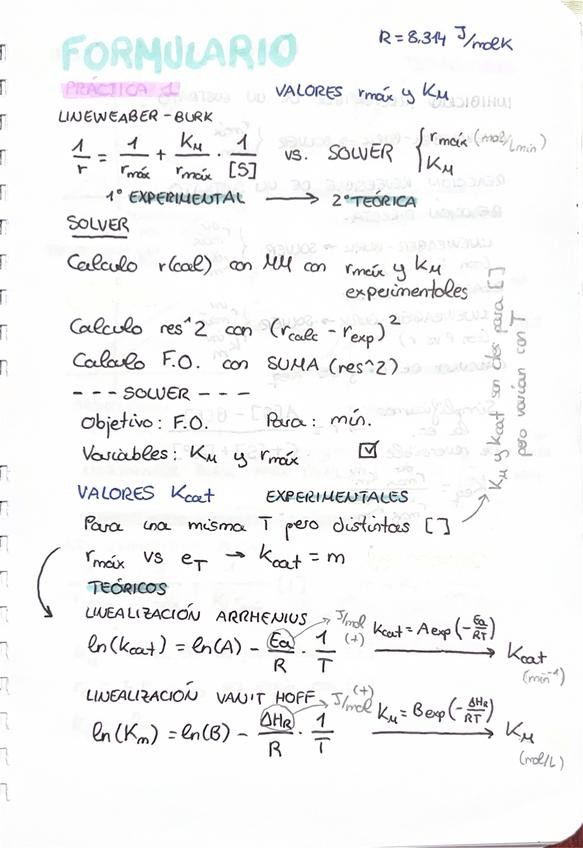 FORMULARIO
R = 8.314 J/molK
PRÁCTICA 1 VALORES rmáx y KM
LINEWEABER-BURK
1/r = 1/rmáx + KM/rmáx · 1/[S] vs. SOLVER { rmáx (mol/Lmin) KM
1º EXPERIMENTAL → 2º TEÓRICA
SOLVER
Calculo r(cal) con MM con rmáx y KM
experimentales
Calculo res^2 con (rcalc - rexp)²
Calculo F.O. con SUMA (res^2)
--- SOLVER ---
Objetivo: F.O. Para: mín.
Variables: KM y rmáx ☑
VALORES Kcat EXPERIMENTALES
Para una misma T pero distintas [ ] →
KM y Kcat son ctes para [ ]
pero varían con T
rmáx vs eT → Kcat = m
TEÓRICOS
LINEALIZACIÓN ARRHENIUS → J/mol (+)
ln(Kcat) = ln(A) - Ea/R · 1/T Kcat = A exp(-Ea/RT) → Kcat (min⁻¹)
LINEALIZACIÓN VAN'T HOFF → J/mol (+)
ln(Km) = ln(B) - ΔHR/R · 1/T KM = B exp(-ΔHR/RT) → KM (mol/L)